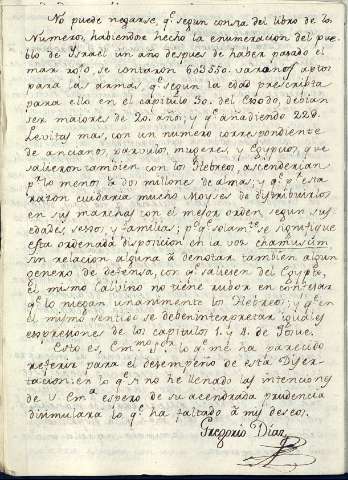 No puede negarse, qe. segun consta del libro de los
Numeros, habiendose hecho la enumeracion del pue-
blo de Israel un año despues de haber pasado el
mar roxo, se contaron 603550. varones aptos
para las armas, qe. segun la edad prescripta
para ello en el capitulo 30. del Exodo, debian
ser maiores de 20. años; y qe. añadiendo 22@.
Levitas mas, con un numero correspondiente
de ancianos, parvulos, mugeres, y Egypcios, que
salieron tambien con los Hebreos, ascenderian
pr. lo menos à dos millones de almas; y qe. pr. esta
razon cuidaria mucho Moyses de distribuirlos
en sus marchas con el mejor orden segun sus
edades, sexos, y familias; pr. qe. solamte. se signifique
esta ordenada disposicion en la voz chamusim
sin relacion alguna à denotar tambien algun
genero de defensa, con qe. saliesen del Egypto,
el mismo Calvino no tiene rubor en confesar
qe. lo niegan unanimente los Hebreos; y qe. en
el mismo sentido se deben interpretar iguales
expresiones de los capitulos 1. y 4. de Josue.
Esto es, Emmo. Sor. lo qe. me ha parecido
referir para el desempeño de esta Diser-
tacion: en lo qe. si no he llenado las intenciones
de V. Ema. espero de su acendrada prudencia
disimulara lo qe. ha faltado à mis deseos.
Gregorio Diaz